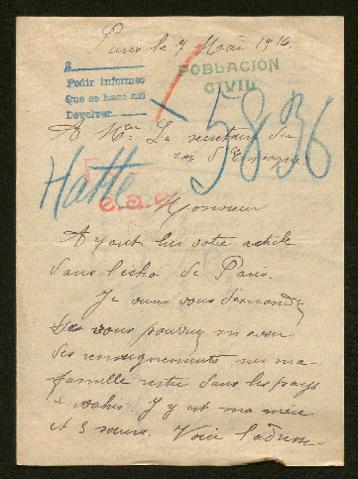 Paris le 7 Mai 1916.
A
Pedir informes
Que se hace así
Devolver
POBLACIÓN
CIVIL
5836
A Mr Le secretaire du
roi d'Espagne
Hatte
e.a.c
Monsieur
Ayant lus votre article
dans l'echo de Paris.
Je viens vous demander
si vous pouvez m avoir
des renseignements sur ma
famille restée dans les pays
envahis. J y est ma mère
et 3 sœurs. Voici l'adresse